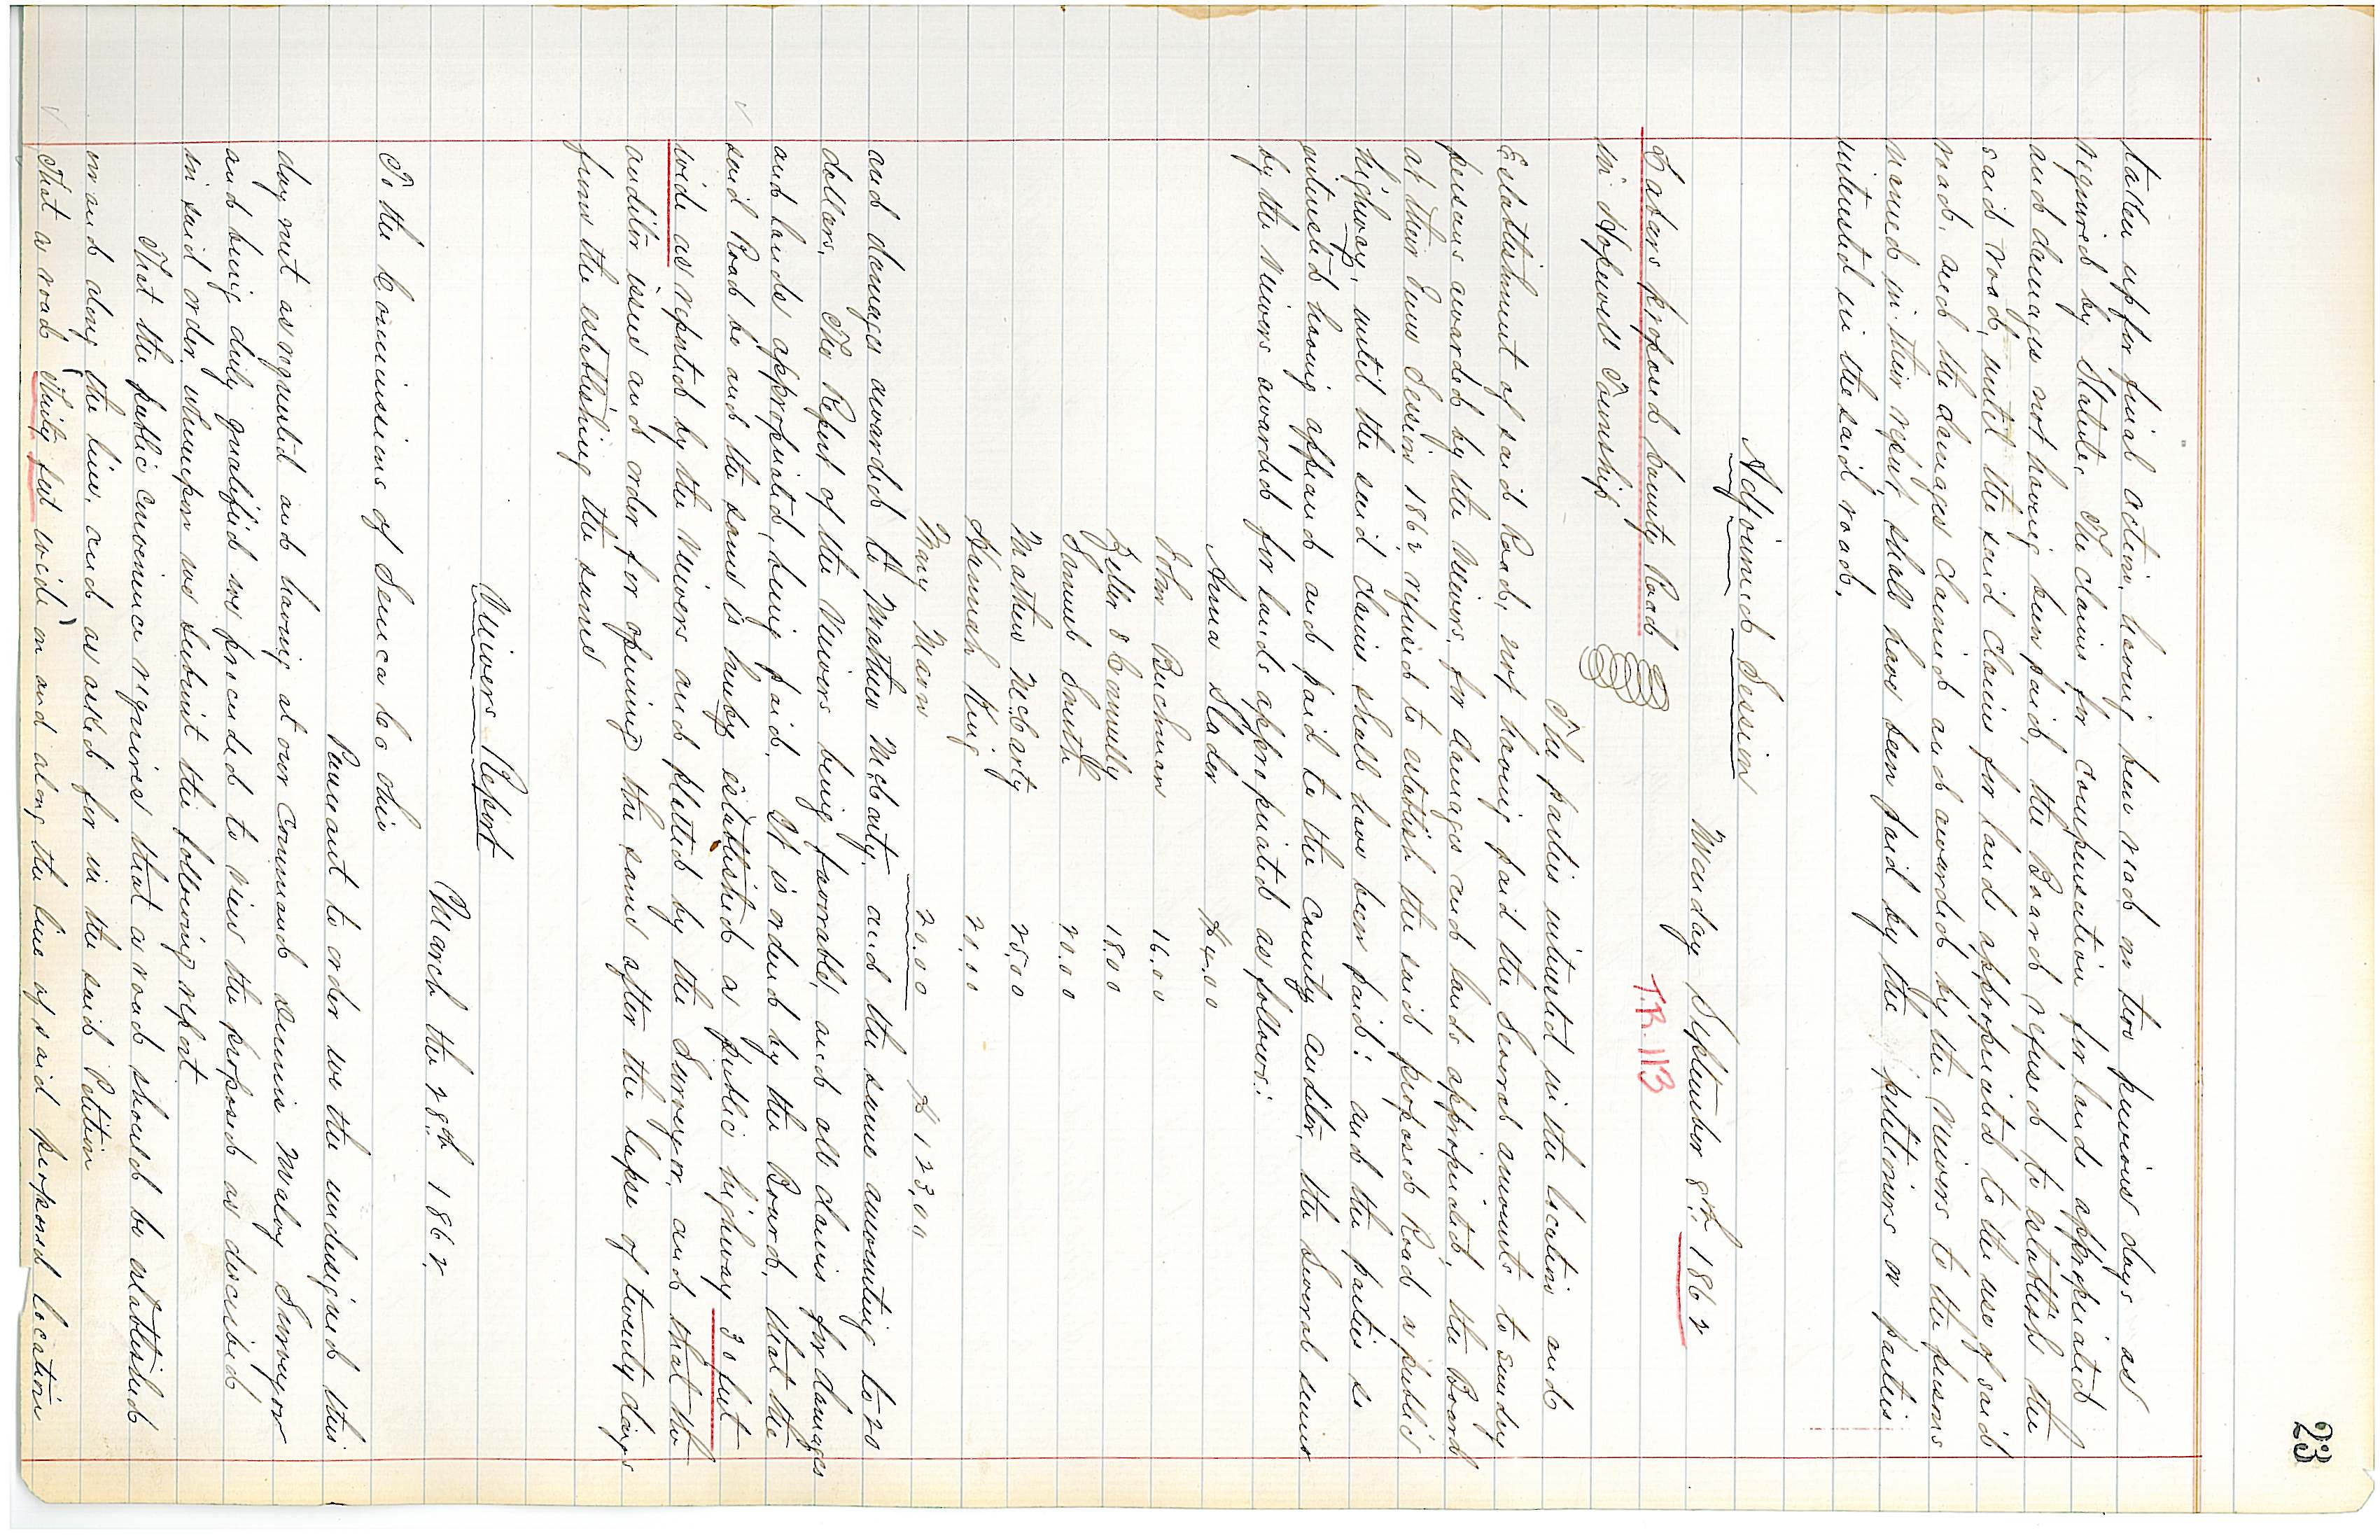 23
taken up for final action, having been read on two previous days as
required by Statute. The claims for compensation for lands appropriated
and damages not having been paid, the Board refused to establish the
said road, until the said claims for lands appropriated to the use of said
road, and the damages claimed and awarded by the viewers to the persons
named in their report, shall have been paid by the petitioners or parties
interested in the said road.
Adjourned Session
Monday September 8th 1862
Tabers proposed County Road T.R. 113
in Hopewell Township
The parties interested in the location and
Establishment of said Road, not having paid the Several amounts to sundry
persons awarded by the Viewers, for damages and lands appropriated, the Board
at their June Session 1862 refused to establish the said proposed Road a public
highway, until the said claims shall have been paid: and the parties so
interested having appeared and paid to the County auditor, the Several sums
by the Viewers awarded for lands appropriated as follows:
Amos Slader $4.00
John Buchman 16.00
Zeller & Connelly 18.00
Samuel Smith 20.00
Mathew McCarty 25.00
Hannah King 20.00
Mary Mason 20.00 $123.00
and damages awarded to Mathew McCarty, and the same amounting to 20
dollars. The Report of the Viewers being favorable, and all claims for damages
and lands appropriated, being paid. It is ordered by the Board, that the
said Road be and the same is hereby established a public highway 30 feet
wide as reported by the Viewers and platted by the Surveyor, and that the
auditor issue and order for opening the same after the lapse of twenty days
from the establishing the same
Viewers Report
March the 28th 1862.
To the Commissions of Seneca Co Ohio
Pursuant to order we the undersigned this
day met as required and having at our Command Dennis Maloy Surveyor
and being duly qualified we proceeded to view the proposed as discribed
in said order whereupon we submit the following report.
That the public convenience requires that a road should be established
on and along the line, and as asked for in the said Petition
That a road (Thirty feet wide) on and along the line of said proposed location